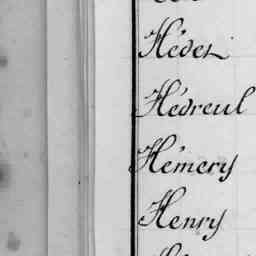 Hédei
Hédreul
Hémery
Henry